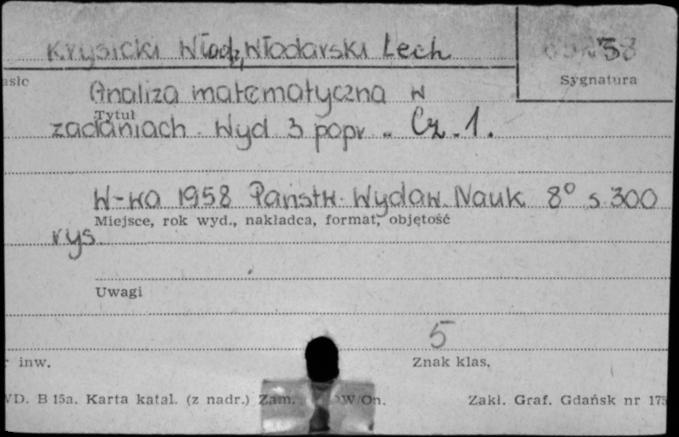 Krysicki Włodz, Włodarski Lech
Sygnatura
Analiza matematyczna w
Tytuł
zadaniach. Wyd 3 popr. Cz. 1.
W-wa 1958 Państw. Wydaw. Nauk 8° s 300
Miejsce, rok wyd., nakładca, format, objętość
rys
Uwagi
5
inw.
Znak klas.
B 15a. Karta katal. (z nadr.) Zam.
Zakł. Graf. Gdańsk nr 175